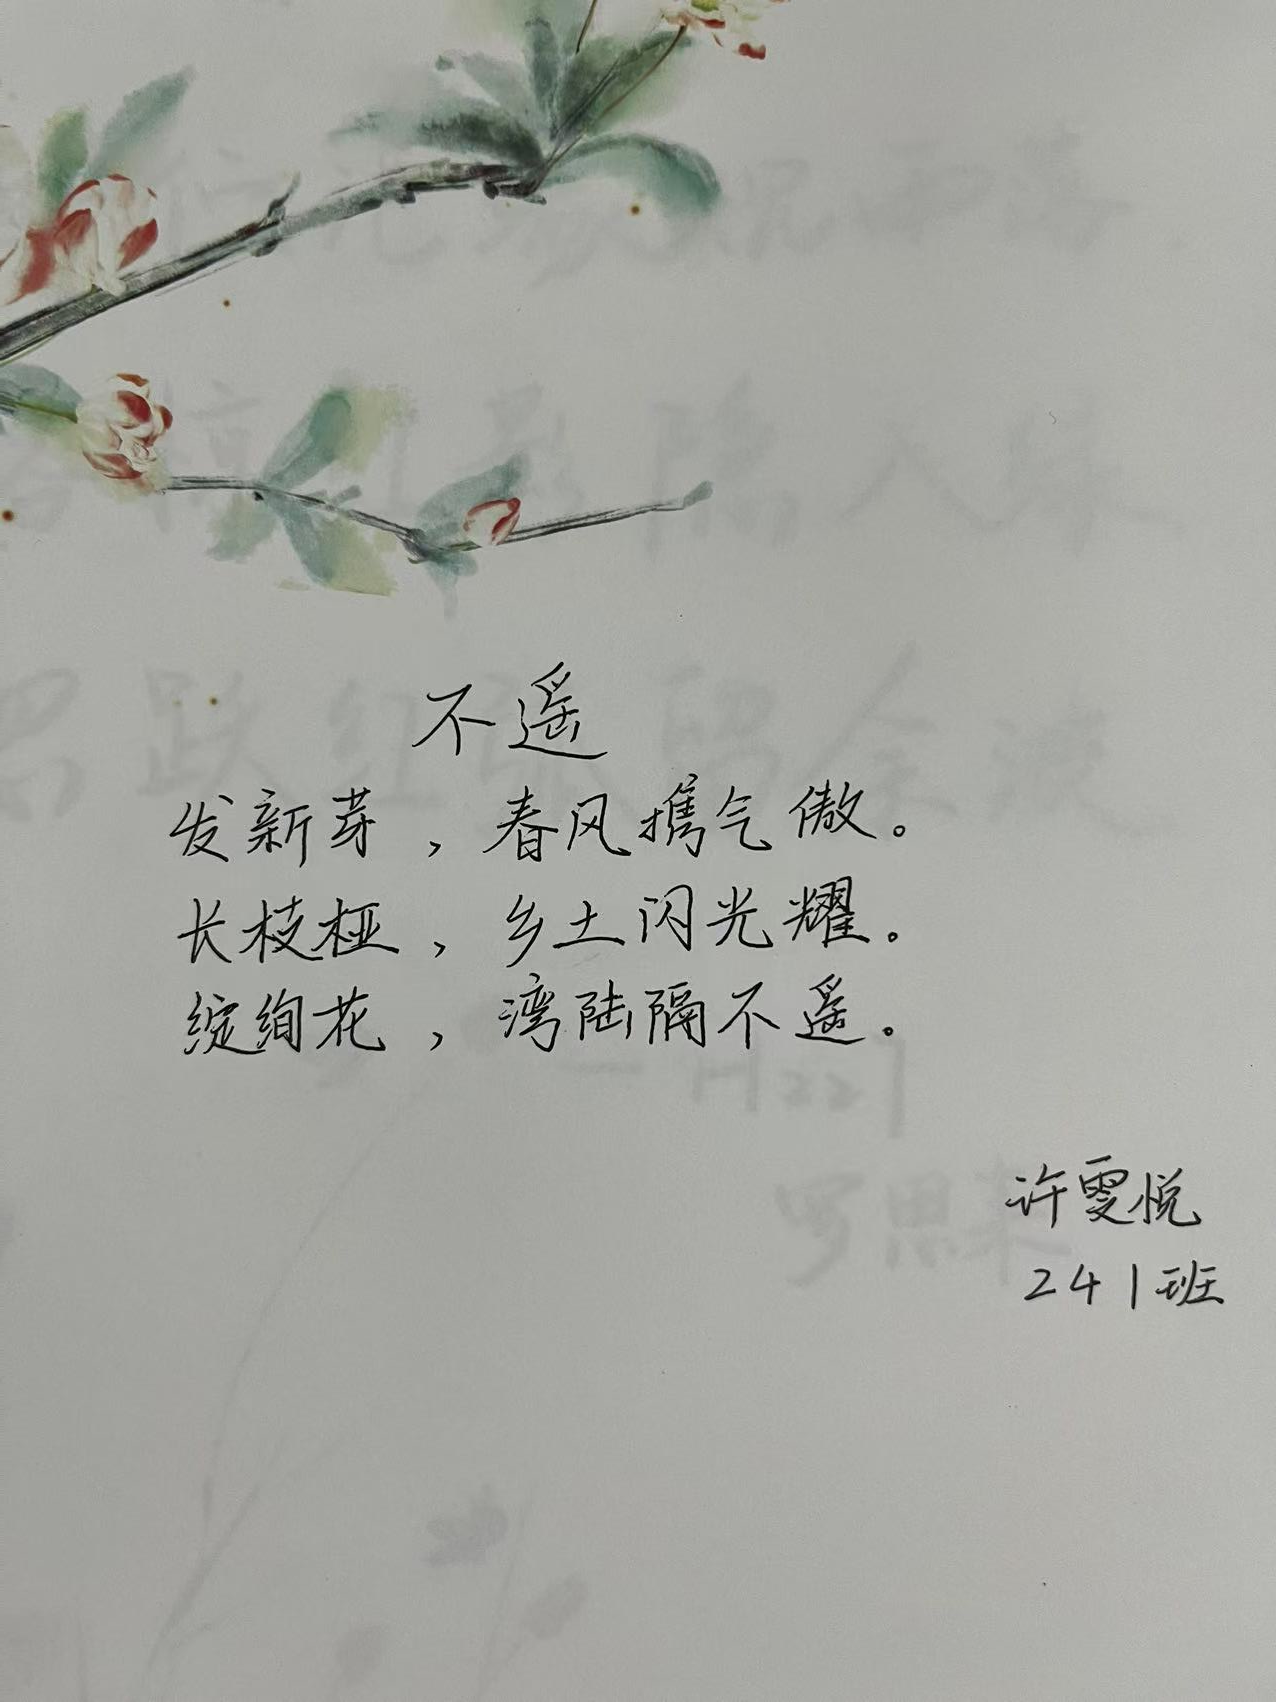 不遥
发新芽，春风携气傲。
长枝桠，乡土闪光耀。
绽绚花，湾陆隔不遥。
许雯悦
241班